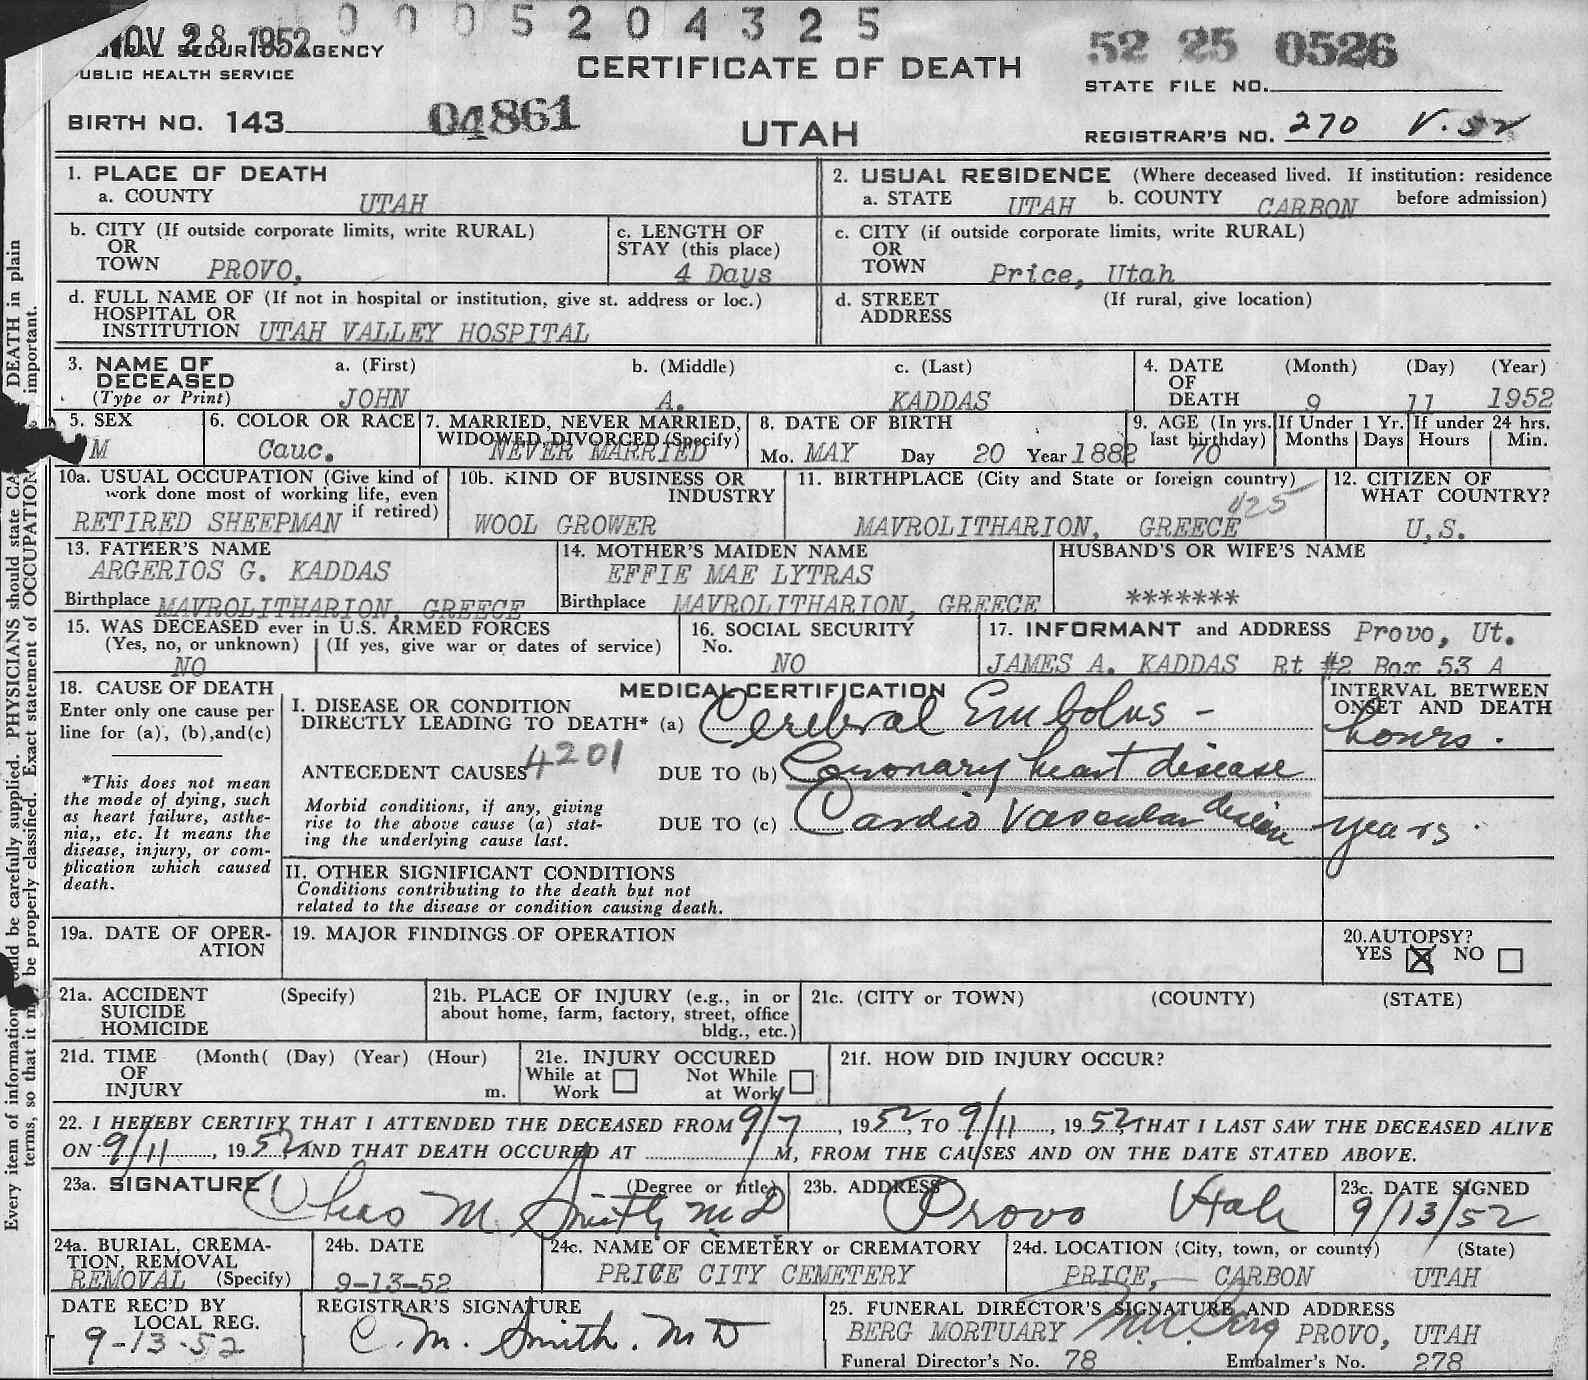 NOV 28 1952 0 0 0 5 2 0 4 3 2 5
SECURITY AGENCY
PUBLIC HEALTH SERVICE
CERTIFICATE OF DEATH
52 25 0526
STATE FILE NO.
BIRTH NO. 143 04861
UTAH
REGISTRAR'S NO. 270 V.52
1. PLACE OF DEATH
a. COUNTY UTAH
2. USUAL RESIDENCE (Where deceased lived. If institution: residence before admission)
a. STATE UTAH b. COUNTY CARBON
b. CITY (If outside corporate limits, write RURAL)
OR
TOWN PROVO,
c. LENGTH OF
STAY (this place)
4 Days
c. CITY (if outside corporate limits, write RURAL)
OR
TOWN Price, Utah
d. FULL NAME OF (If not in hospital or institution, give st. address or loc.)
HOSPITAL OR
INSTITUTION UTAH VALLEY HOSPITAL
d. STREET (If rural, give location)
ADDRESS
3. NAME OF
DECEASED
(Type or Print)
a. (First) b. (Middle) c. (Last)
JOHN A. KADDAS
4. DATE
OF
DEATH
(Month) (Day) (Year)
9 11 1952
5. SEX
M
6. COLOR OR RACE
Cauc.
7. MARRIED, NEVER MARRIED,
WIDOWED, DIVORCED (Specify)
NEVER MARRIED
8. DATE OF BIRTH
Mo. MAY Day 20 Year 1882
9. AGE (In yrs.
last birthday)
70
If Under 1 Yr.
Months Days
If under 24 hrs.
Hours Min.
10a. USUAL OCCUPATION (Give kind of
work done most of working life, even
if retired)
RETIRED SHEEPMAN
10b. KIND OF BUSINESS OR
INDUSTRY
WOOL GROWER
11. BIRTHPLACE (City and State or foreign country)
425
MAVROLITHARION, GREECE
12. CITIZEN OF
WHAT COUNTRY?
U.S.
13. FATHER'S NAME
ARGERIOS G. KADDAS
Birthplace MAVROLITHARION, GREECE
14. MOTHER'S MAIDEN NAME
EFFIE MAE LYTRAS
Birthplace MAVROLITHARION, GREECE
HUSBAND'S OR WIFE'S NAME
*******
15. WAS DECEASED ever in U.S. ARMED FORCES
(Yes, no, or unknown) (If yes, give war or dates of service)
NO
16. SOCIAL SECURITY
No.
NO
17. INFORMANT and ADDRESS Provo, Ut.
JAMES A. KADDAS Rt #2 Box 53 A
18. CAUSE OF DEATH
Enter only one cause per
line for (a), (b),and(c)
*This does not mean
the mode of dying, such
as heart failure, asthe-
nia,, etc. It means the
disease, injury, or com-
plication which caused
death.
MEDICAL CERTIFICATION
I. DISEASE OR CONDITION
DIRECTLY LEADING TO DEATH* (a) Cerebral Embolus -
ANTECEDENT CAUSES 4201
DUE TO (b) Coronary heart disease
Morbid conditions, if any, giving
rise to the above cause (a) stat-
ing the underlying cause last.
DUE TO (c) Cardio Vascular disease
INTERVAL BETWEEN
ONSET AND DEATH
hours.
years.
II. OTHER SIGNIFICANT CONDITIONS
Conditions contributing to the death but not
related to the disease or condition causing death.
19a. DATE OF OPER-
ATION
19. MAJOR FINDINGS OF OPERATION
20. AUTOPSY?
YES X NO
21a. ACCIDENT (Specify)
SUICIDE
HOMICIDE
21b. PLACE OF INJURY (e.g., in or
about home, farm, factory, street, office
bldg., etc.)
21c. (CITY or TOWN) (COUNTY) (STATE)
21d. TIME (Month( (Day) (Year) (Hour)
OF
INJURY m.
21e. INJURY OCCURED
While at Not While
Work at Work
21f. HOW DID INJURY OCCUR?
22. I HEREBY CERTIFY THAT I ATTENDED THE DECEASED FROM 9/7, 1952, TO 9/11, 1952, THAT I LAST SAW THE DECEASED ALIVE
ON 9/11, 1952 AND THAT DEATH OCCURED AT M, FROM THE CAUSES AND ON THE DATE STATED ABOVE.
23a. SIGNATURE (Degree or title)
Chas M. Smith MD
23b. ADDRESS
Provo Utah
23c. DATE SIGNED
9/13/52
24a. BURIAL, CREMA-
TION, REMOVAL
REMOVAL (Specify)
24b. DATE
9-13-52
24c. NAME OF CEMETERY or CREMATORY
PRICE CITY CEMETERY
24d. LOCATION (City, town, or county) (State)
PRICE, CARBON UTAH
DATE REC'D BY
LOCAL REG.
9-13-52
REGISTRAR'S SIGNATURE
C. M. Smith. MD
25. FUNERAL DIRECTOR'S SIGNATURE AND ADDRESS
BERG MORTUARY PROVO, UTAH
Funeral Director's No. 78 Embalmer's No. 278
DEATH in plain
important.
PHYSICIANS should state
Exact statement of OCCUPATION
be carefully supplied.
be properly classified.
Every item of information
terms, so that it